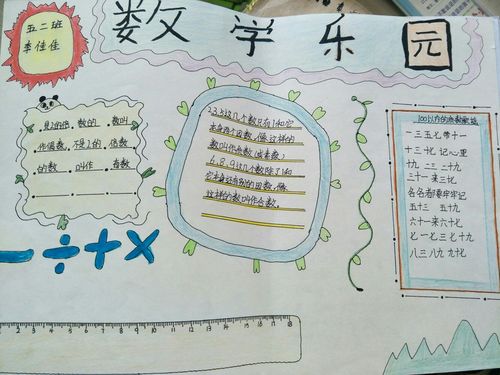 五二班
李佳佳
数学乐园
是2的倍数的数叫
作偶数,不是2的倍数
的数叫作奇数
2.3.5.这几个数只有1和它
本身两个因数,像这样的
数叫作质数(或素数)
6.8.9这几个数除了1和
它本身还有别的因数,像
这样的数叫作合数。
100以内的质数歌谣
一三五七带十一
十三十七记心里
十九 二三 二十九
三十一来三七
名名若要牢牢记
五十三 五十九
六十一来六十七
七一七三七十九
八三八九九七
− ÷ + ×
1 2 3 4 5 6 7 8 9 10 11 12 13 14 15 16 17 18